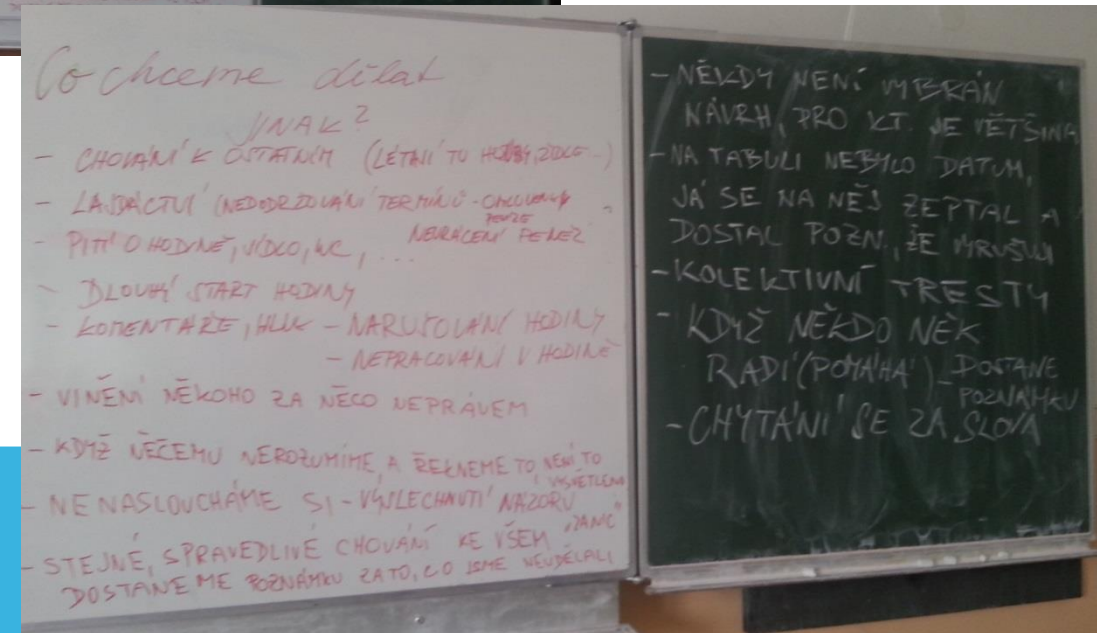 Co chceme dělat
JINAK?
- CHOVÁNÍ K OSTATNÍM (LÉTAJÍ TU HOUBY, ŽIDLE...)
- LAJDÁCTVÍ (NEDODRŽOVÁNÍ TERMÍNŮ - OMLUVENKY
PENÍZE
NEVRÁCENÍ PENĚZ
- PITÍ O HODINĚ, JÍDLO, WC, ...
- DLOUHÝ START HODINY
- KOMENTÁŘE, HLUK - NARUŠOVÁNÍ HODINY
- NEPRACOVÁNÍ V HODINĚ
- VINĚNÍ NĚKOHO ZA NĚCO NEPRÁVEM
- KDYŽ NĚČEMU NEROZUMÍME, A ŘEKNEME TO, NENÍ TO
VYSVĚTLENO
- NENASLOUCHÁME SI - VYSLECHNUTÍ NÁZORU
- STEJNÉ, SPRAVEDLIVÉ CHOVÁNÍ KE VŠEM "ZANIC"
DOSTANEME POZNÁMKU ZA TO, CO JSME NEUDĚLALI
- NĚKDY NENÍ VYBRÁN
NÁVRH, PRO KT. JE VĚTŠINA
- NA TABULI NEBYLO DATUM,
JÁ SE NA NĚJ ZEPTAL A
DOSTAL POZN., ŽE VYRUŠUJI
- KOLEKTIVNÍ TRESTY
- KDYŽ NĚKDO NĚK
RADÍ (POMÁHÁ) - DOSTANE
POZNÁMKU
- CHYTÁNÍ SE ZA SLOVA